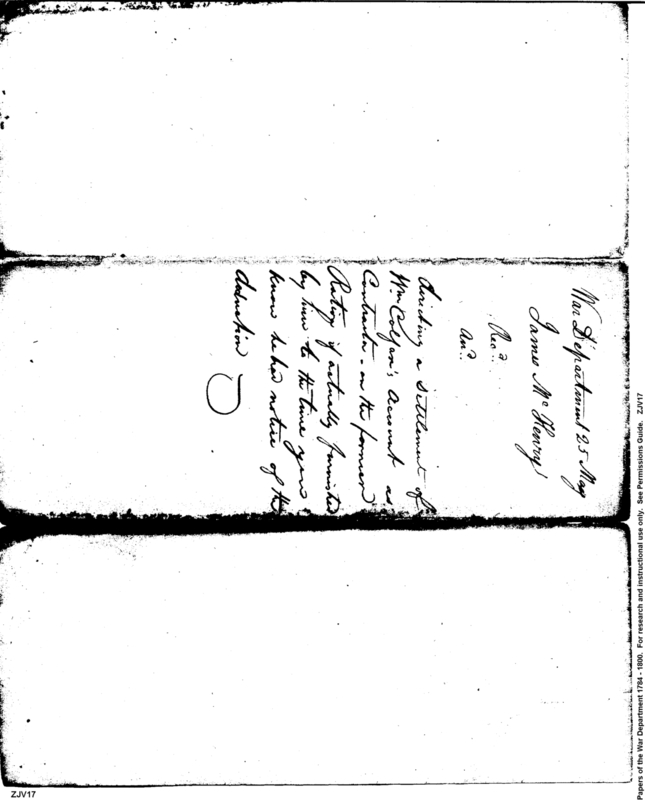 War Department 25 May
James McHenry
Rec.d
An.d
Advising a Settlement of
Wm Colfax's Account as
Contractor - on the former
Rations if actually furnished
by him to the time
know he had notice of the
deduction
Papers of the War Department 1784 - 1800. For research and instructional use only. See Permissions Guide. ZJV17
ZJV17